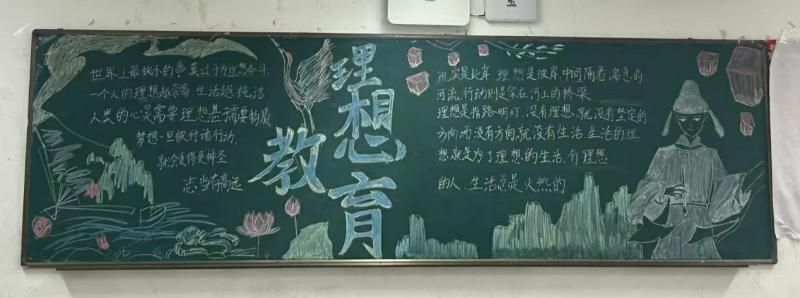 世界上最快乐的事莫过于为理想奋斗
一个人的理想越崇高 生活越纯洁
人类的心灵需要理想甚于需要物质
梦想一旦被付诸行动
就会变得更神圣
志当存高远
理想教育
现实是此岸 理想是彼岸 中间隔着湍急的
河流,行动则是架在河上的桥梁
理想是指路明灯,没有理想,就没有坚定的
方向,而没有方向,就没有生活 生活的理
想,就是为了理想的生活,有理想
的人,生活总是火热的